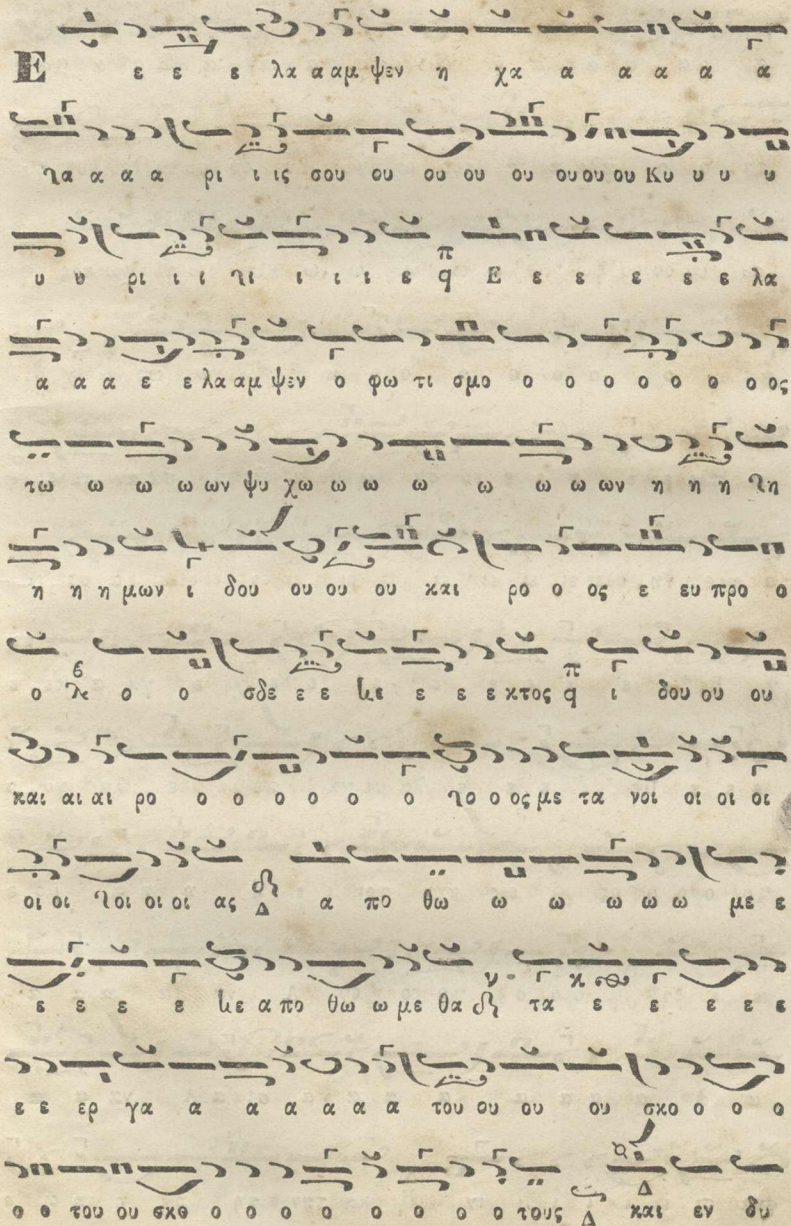 Ε ε ε ε λα α αμ ψεν η χα α α α α α
γα α α α ρι ι ις σου ου ου ου ου ου ου ου Κυ υ υ υ
υ υ ρι ι ι γι ι ι ι ε π q Ε ε ε ε ε ε λα
α α α ε ε λα αμ ψεν ο φω τι σμο ο ο ο ο ο ο ος
τω ω ω ω ων ψυ χω ω ω ω ω ω ω ων η η η γη
η η η μων ι δου ου ου ου και ρο ο ος ε ευ προ ο
ο ο ο σδε ε ε με ε ε ε κτος π q ι δου ου ου
και αι αι ρο ο ο ο ο ο ο γο ο ος με τα νοι οι οι οι
οι οι γοι οι οι ας Δ α πο θω ω ω ω ω ω με ε
ε ε ε ε με α πο θω ω με θα τα ε ε ε ε ε
ε ε ερ γα α α α α α α του ου ου ου σκο ο ο ο
ο ο του ου σκο ο ο ο ο ο ο ο ο τους Δ Δ και εν δυ